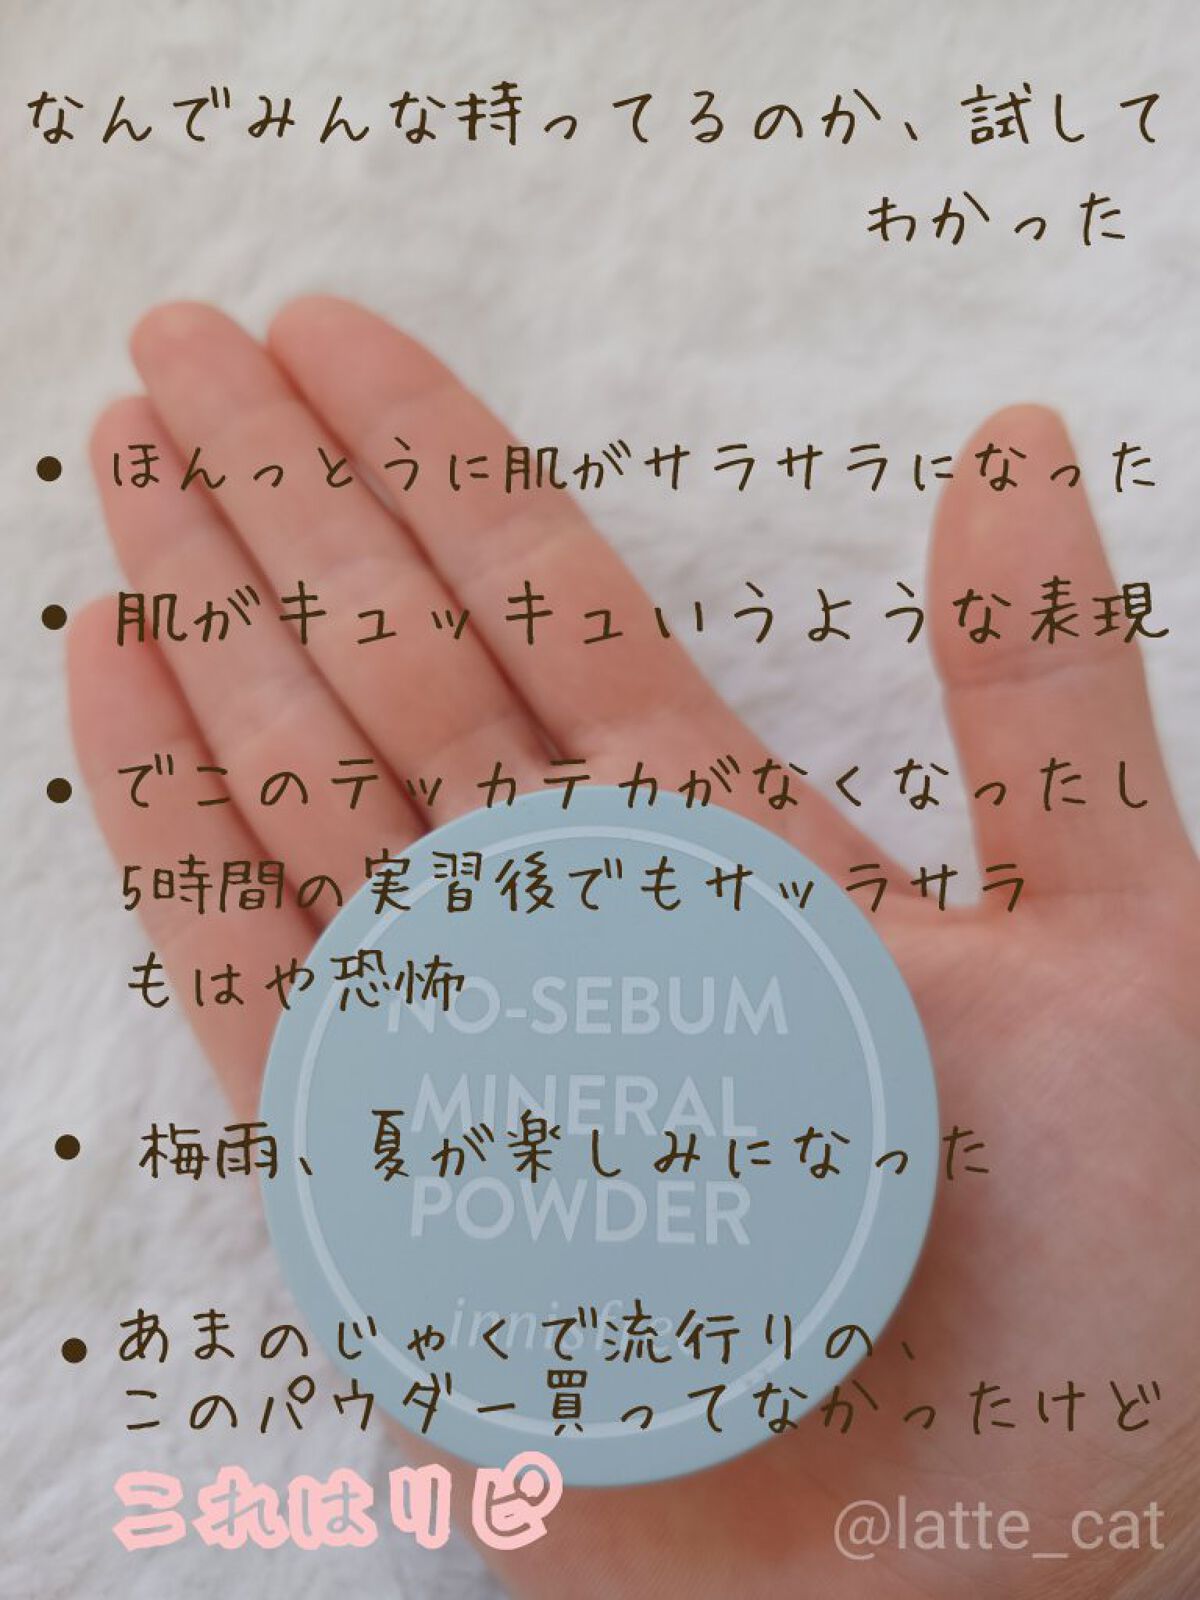 なんでみんな持ってるのか、試して
わかった
• ほんっとうに肌がサラサラになった
• 肌がキュッキュいうような表現
• でこのテッカテカがなくなったし
5時間の実習後でもサッラサラ
もはや恐怖
NO-SEBUM
MINERAL
• 梅雨、夏が楽しみになった
POWDER
innisfree
• あまのじゃくで流行りの、
このパウダー買ってなかったけど
これはリピ
@latte_cat